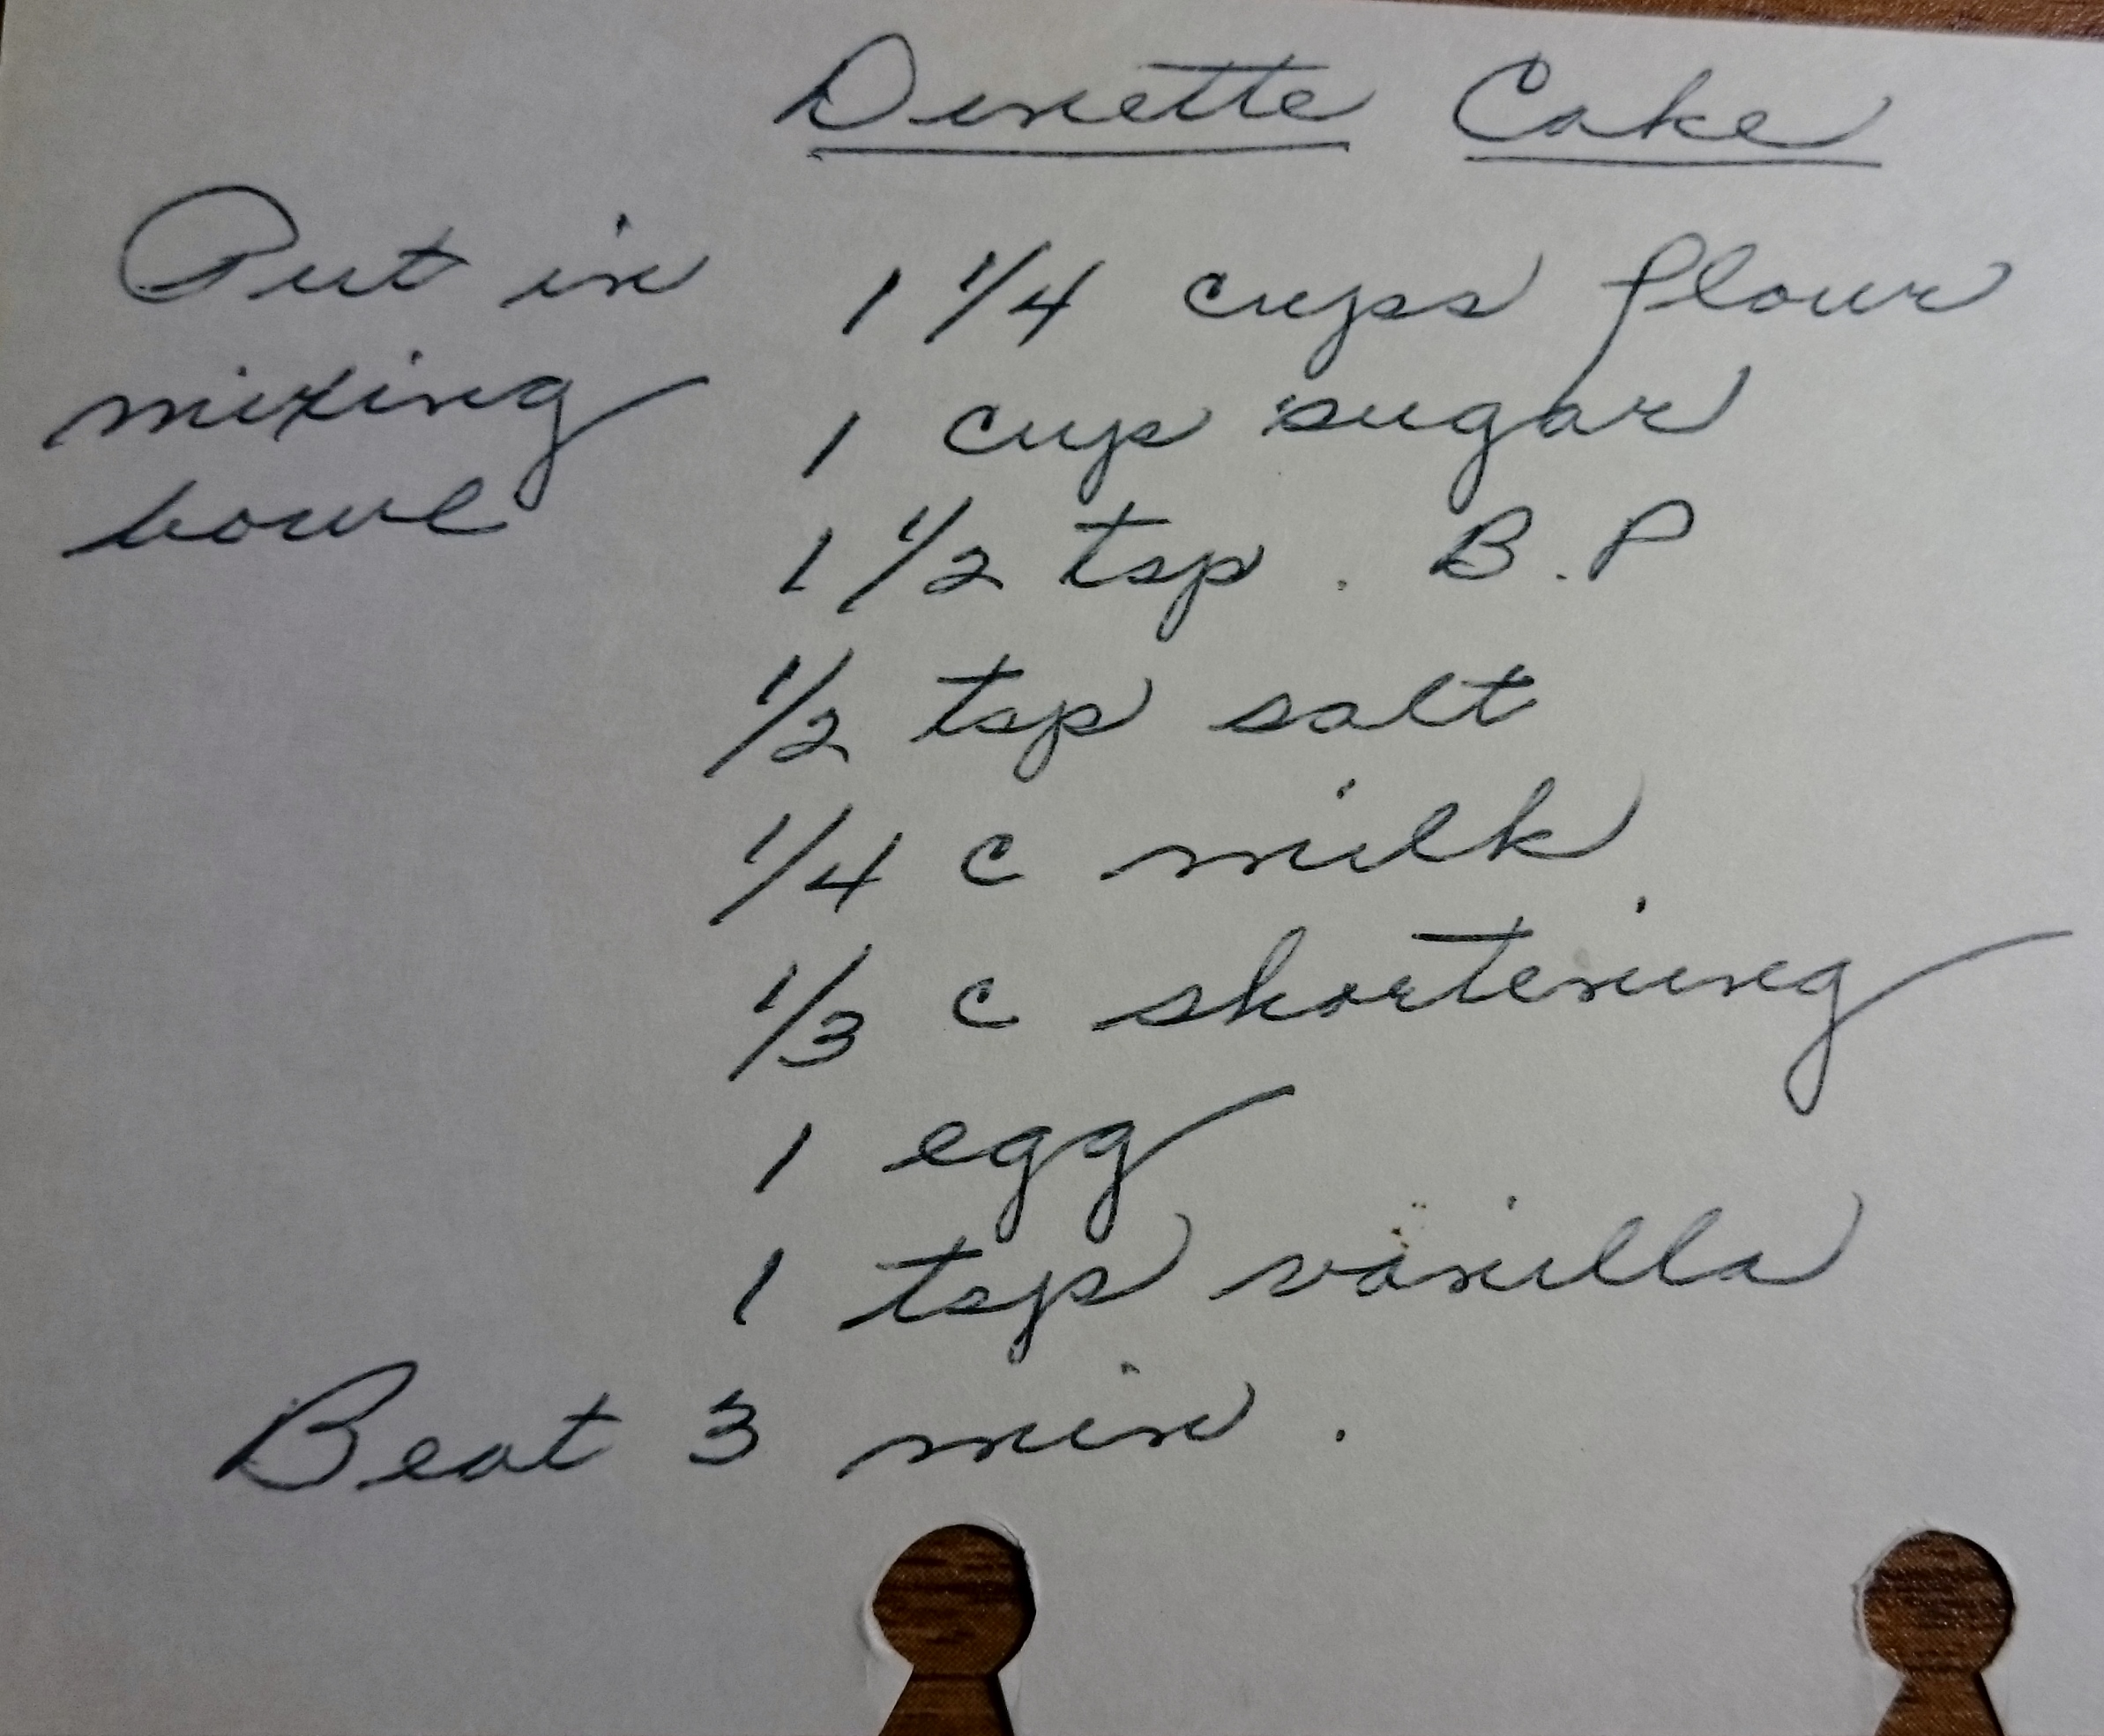 Dinette Cake
Put in
mixing
bowl
1 1/4 cups flour
1 cup sugar
1 1/2 tsp. B.P
1/2 tsp salt
1/4 c milk
1/3 c shortening
1 egg
1 tsp vanilla
Beat 3 min.